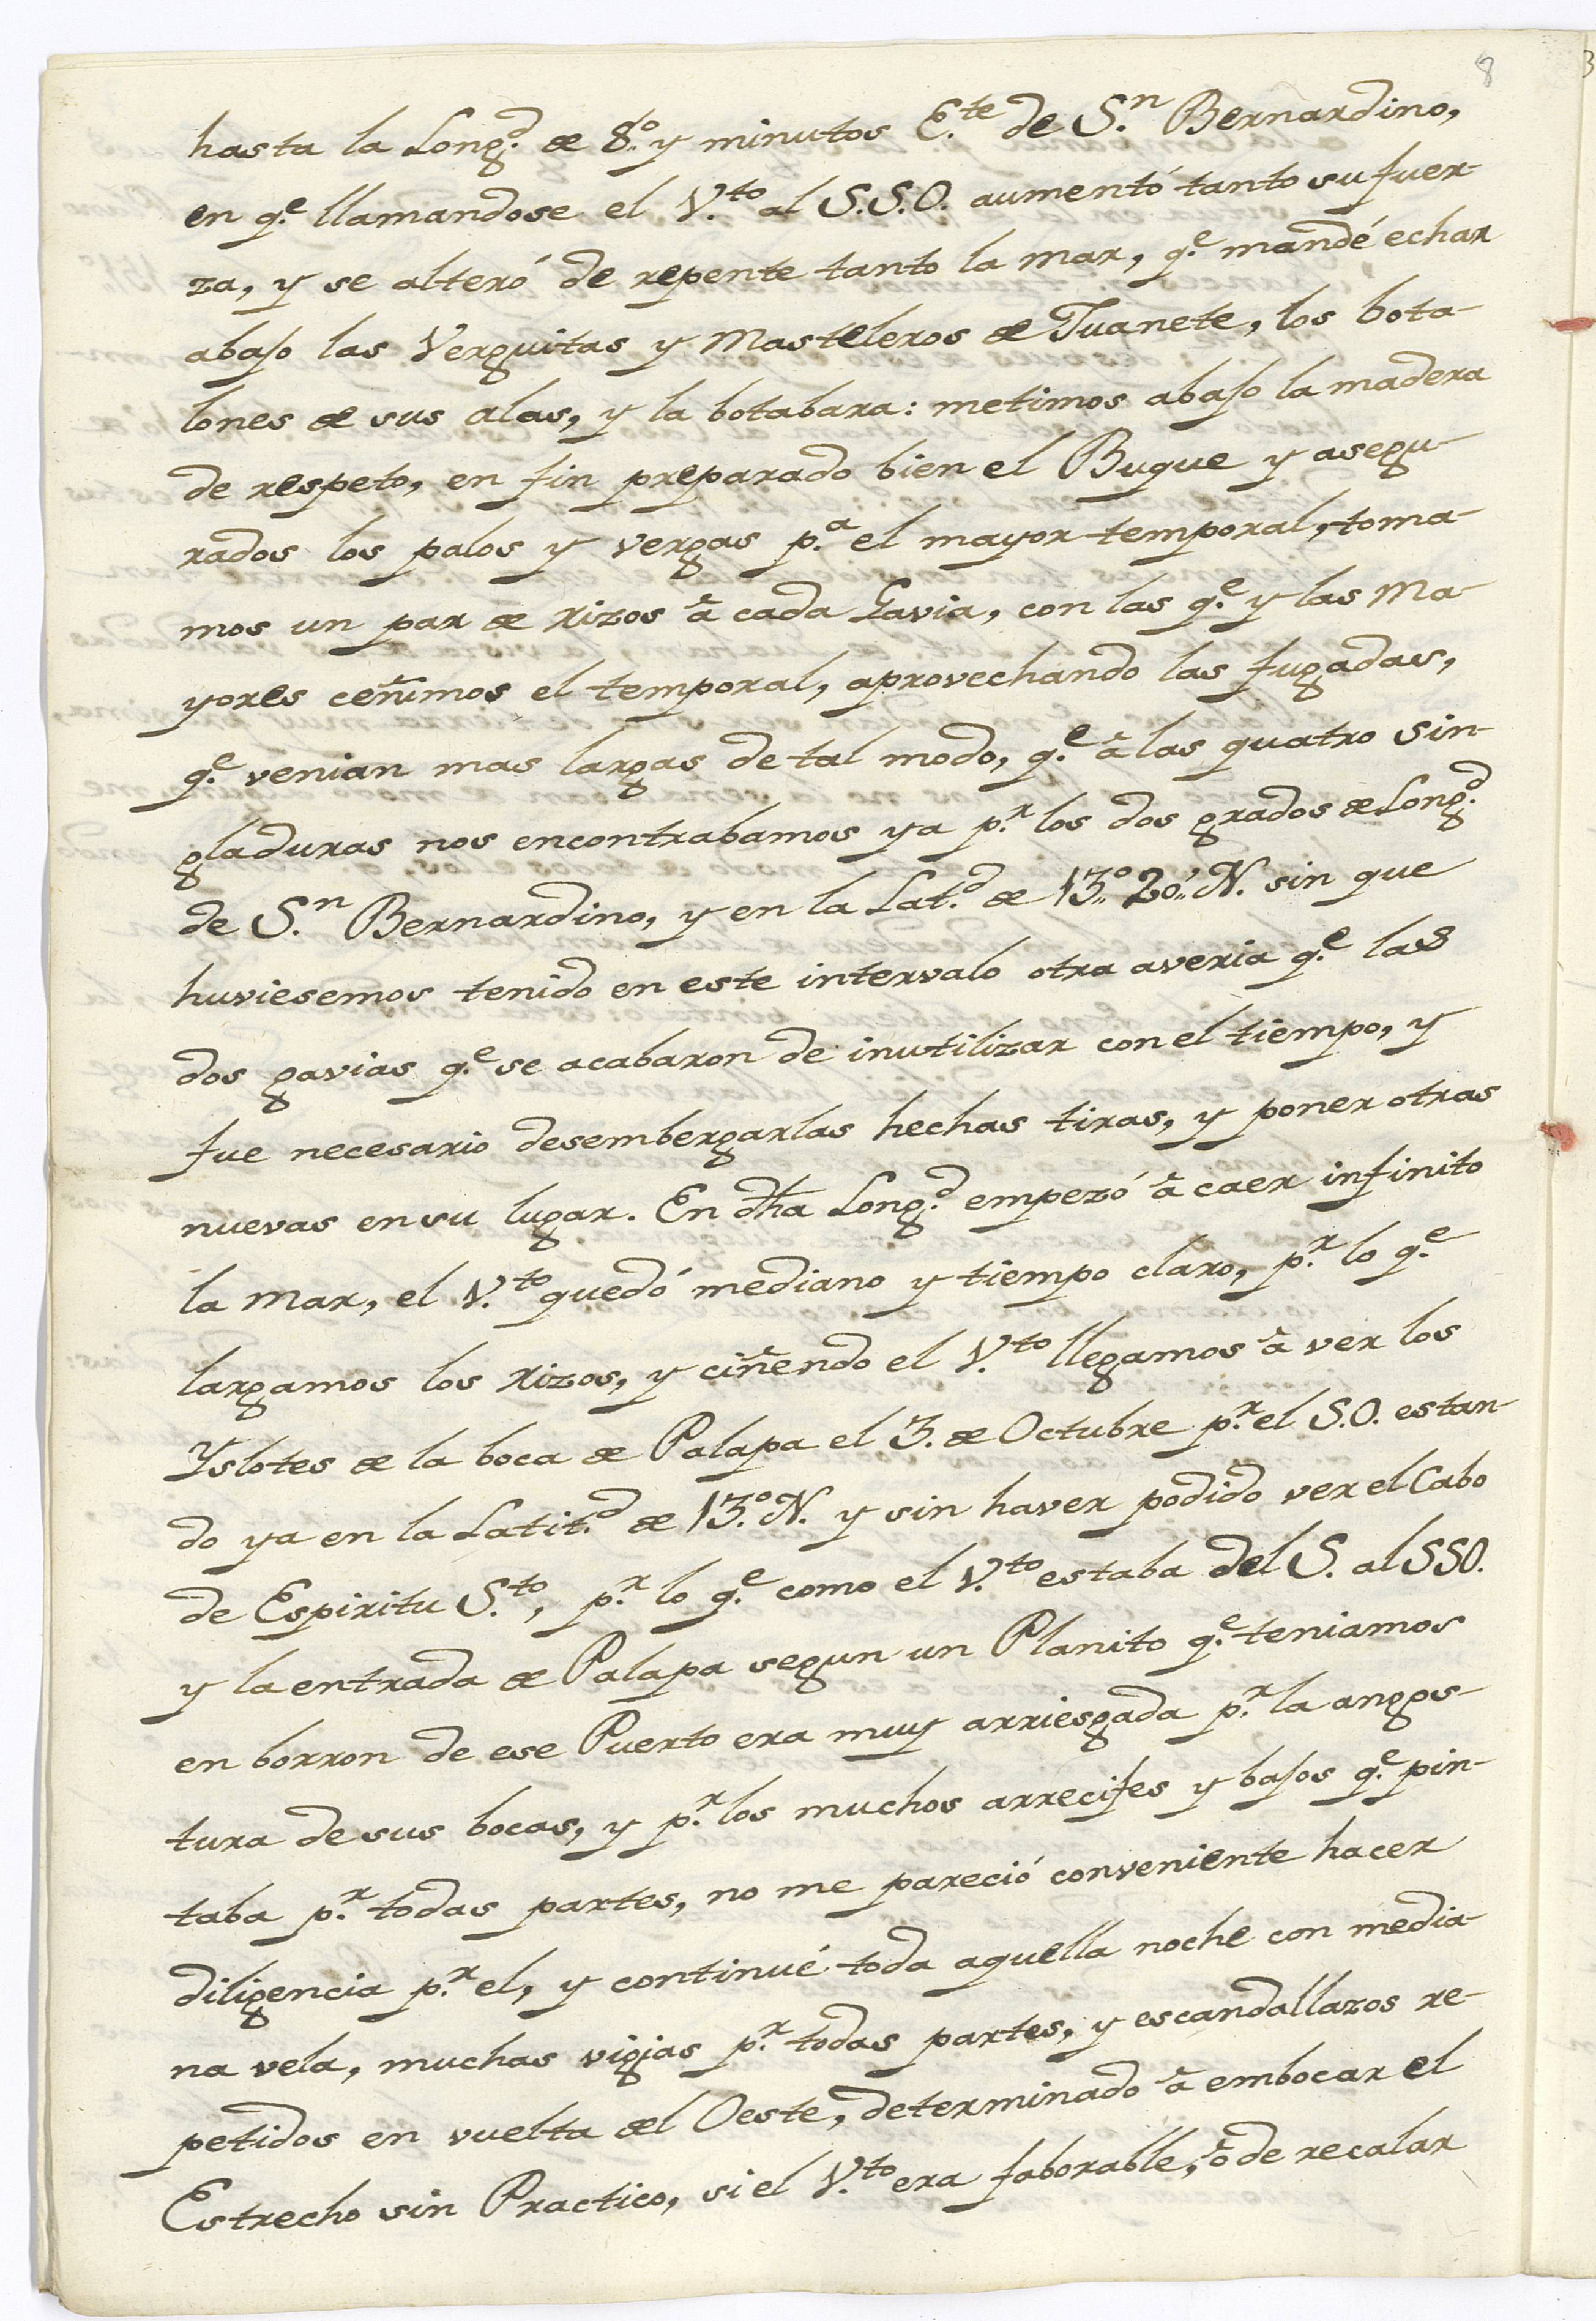 8
hasta la Long.d de 8.º y minutos E.te de S.n Bernardino,
en q.e llamandose el V.to al S.S.O. aumentó tanto su fuer-
za, y se alteró de repente tanto la mar, q.e mandé echar
abajo las Verguitas y Masteleros de Juanete, los bota-
lones de sus alas, y la botabara: metimos abajo la madera
de respeto, en fin preparado bien el Buque y asegu-
rados los palos y vergas p.a el mayor temporal, toma-
mos un par de rizos à cada Gavia, con las q.e y las Ma-
yores ceñimos el temporal, aprovechando las fugadas,
q.e venian mas largas de tal modo, q.e à las quatro sin-
gladuras nos encontrabamos ya p.r los dos grados de Long.d
de S.n Bernardino, y en la Lat.d de 13.º 20.' N. sin que
huviesemos tenido en este intervalo otra averia q.e las
dos gavias q.e se acabaron de inutilizar con el tiempo, y
fue necesario desembergarlas hechas tiras, y poner otras
nuevas en su lugar. En dha Long.d empezó à caer infinito
la mar, el V.to quedó mediano y tiempo claro, p.r lo q.e
largamos los rizos, y ciñendo el V.to llegamos à ver los
Yslotes de la boca de Palapa el 3. de Octubre p.r el S.O. estan-
do ya en la Latit.d de 13.º N. y sin haver podido ver el Cabo
de Espiritu S.to, p.r lo q.e como el V.to estaba del S. al SSO.
y la entrada de Palapa segun un Planito q.e teniamos
en borron de ese Puerto era muy arriesgada p.r la angos-
tura de sus bocas, y p.r los muchos arrecifes y bajos q.e pin-
taba p.r todas partes, no me pareció conveniente hacer
diligencia p.r el, y continué toda aquella noche con media-
na vela, muchas vigias p.r todas partes, y escandallazos re-
petidos en vuelta del Oeste, determinado à embocar el
Estrecho sin Practico, si el V.to era faborable, ò de recalar